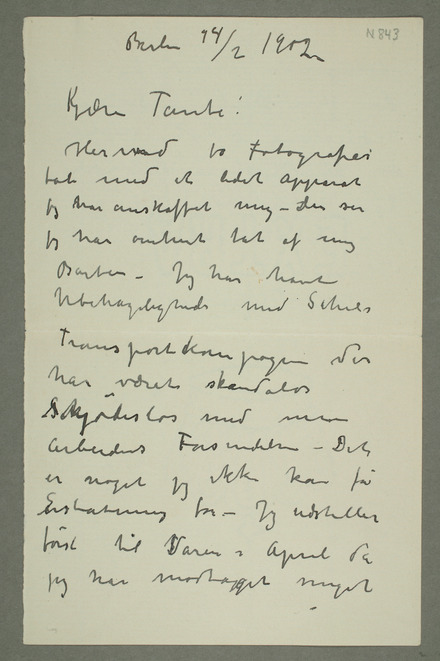 N 843
Berlin 14/2 1902
Kjære Tante!
Hermed to Fotografier
tat med et lidet apparat
jeg har anskaffet mig – Du ser
jeg har omhent tat af mig
Barten – Jeg har havt
Ubehageligheder med Schuls
Transportkompagni der
har været skandaløs
Skjødesløs med mine
arbeiders Forsendelse – Det
er noget jeg ikke kan få
Erstatning for – Jeg udstiller
først til Våren i April da
jeg har modtaget meget